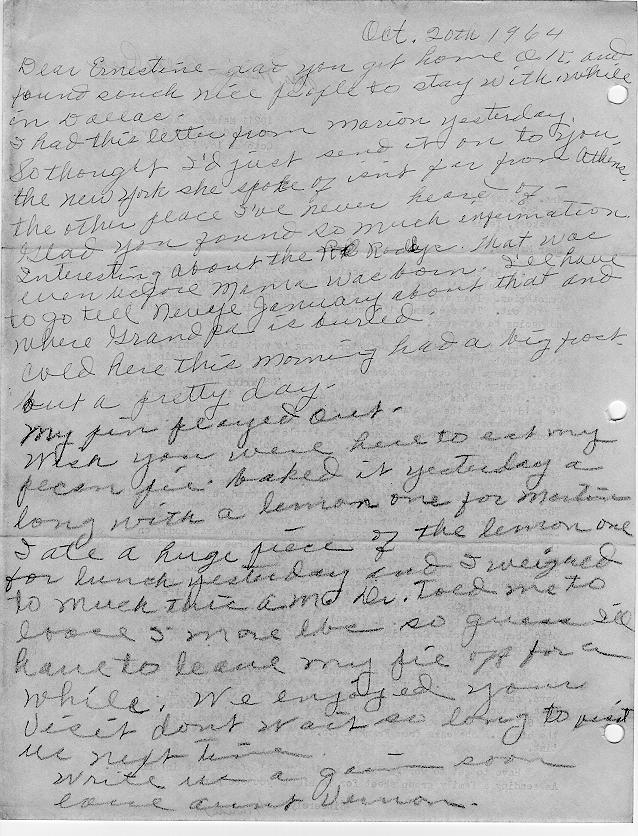 Oct. 20th 1964
Dear Ernestine - you got home O.K. and
found souch nice people to stay with while
in Dallas.
I had this letter from Marion yesterday.
So thought I'd just send it on to you.
the New York she spoke of isnt far from Athens.
the other place I've never heard of -
Glad you found so much information.
Interesting about the Rodys. that was
even before Mama was born. I'll have
to go tell January about that and
where Grandpa is buried.
cold here this morning had a big frost-
but a pretty day.
My pin played out.
Wish you were here to eat my
pecan pie. baked it yesterday a
long with a lemon one for
I ate a huge piece of the lemon one
for lunch yesterday and I weighed
to much this a.m. Dr. Toed me to
loose 5 more lbs. so guess I'll
have to leave my pie off for a
while. We enjoyed your
visit dont wait so long to visit
us next time
Write us a gain soon
love aunt Vernon.